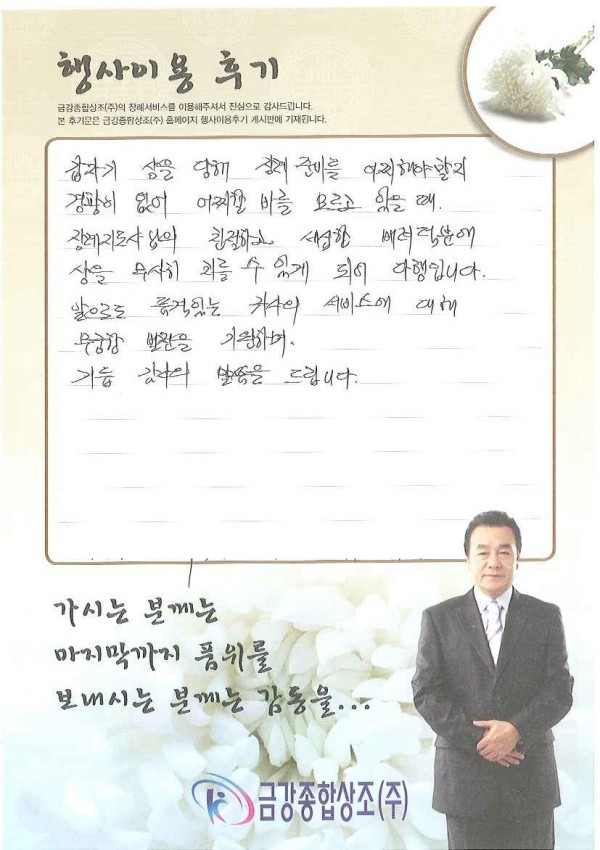 행사이용 후기
금강종합상조(주)의 장례서비스를 이용해주셔서 진심으로 감사드립니다.
본 후기문은 금강종합상조(주) 홈페이지 행사이용후기 게시판에 기재됩니다.
갑자기 상을 당해 장례 준비를 어찌해야할지
경황이 없어 어찌할 바를 모르고 있을 때.
장례지도사님의 친절하고 세심한 배려덕분에
상을 무사히 치를 수 있게 되어 다행입니다.
앞으로도 품격있는 귀사의 서비스에 대해
무궁한 발전을 기원하며.
거듭 감사의 말씀을 드립니다.
가시는 분께는
마지막까지 품위를
보내시는 분께는 감동을...
금강종합상조(주)